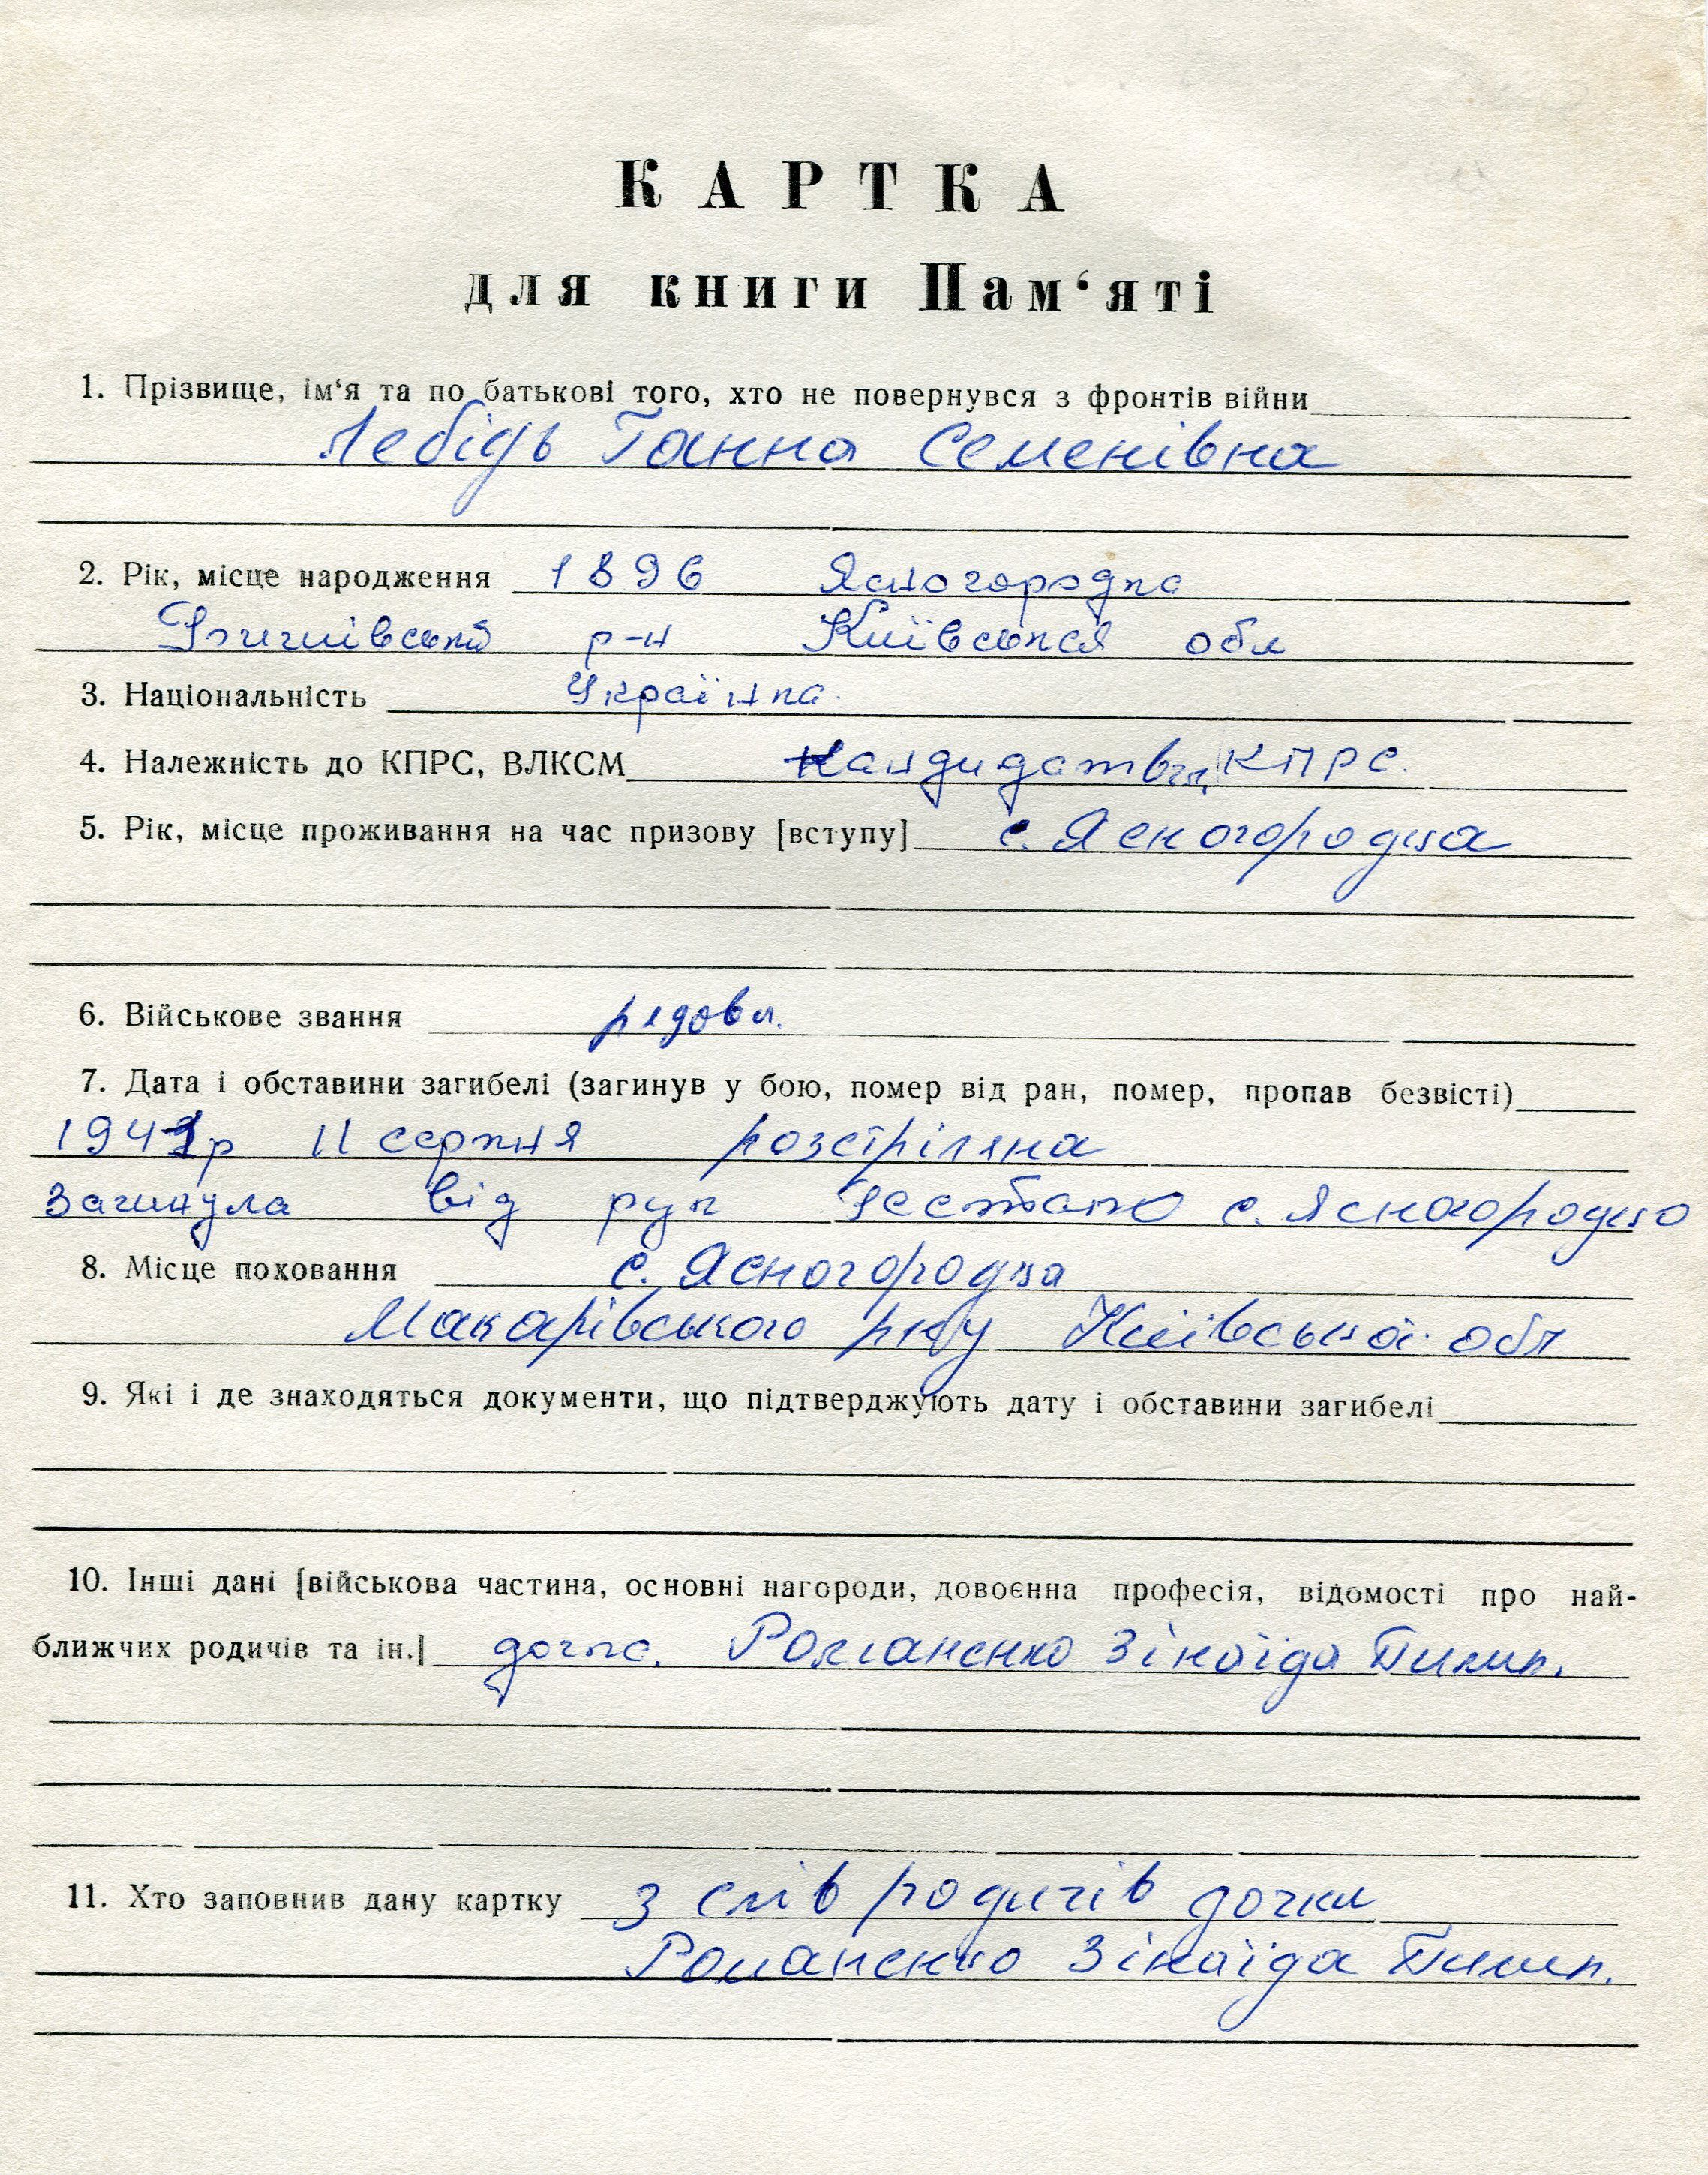 КАРТКА
для книги Пам‘яті
1. Прізвище, ім‘я та по батькові того, хто не повернувся з фронтів війни
Лебідь Ганна Семенівна
2. Рік, місце народження 1896 Ясногородка
р-н Київської обл
3. Національність Українка.
4. Належність до КПРС, ВЛКСМ КПРС.
5. Рік, місце проживання на час призову [вступу] с. Ясногородка
6. Військове звання рядов.
7. Дата і обставини загибелі (загинув у бою, помер від ран, помер, пропав безвісті)
1941р 11 серпня розстріляна
Загинула від рук гестапо с. Ясногородка
8. Місце поховання с. Ясногородка
Макарівського р-ну Київської обл
9. Які і де знаходяться документи, що підтверджують дату і обставини загибелі
10. Інші дані [військова частина, основні нагороди, довоєнна професія, відомості про най-
ближчих родичів та ін.] дочка. Романенко Зінаїда Пилип.
11. Хто заповнив дану картку З слів родичів дочки
Романенко Зінаїда Пилип.